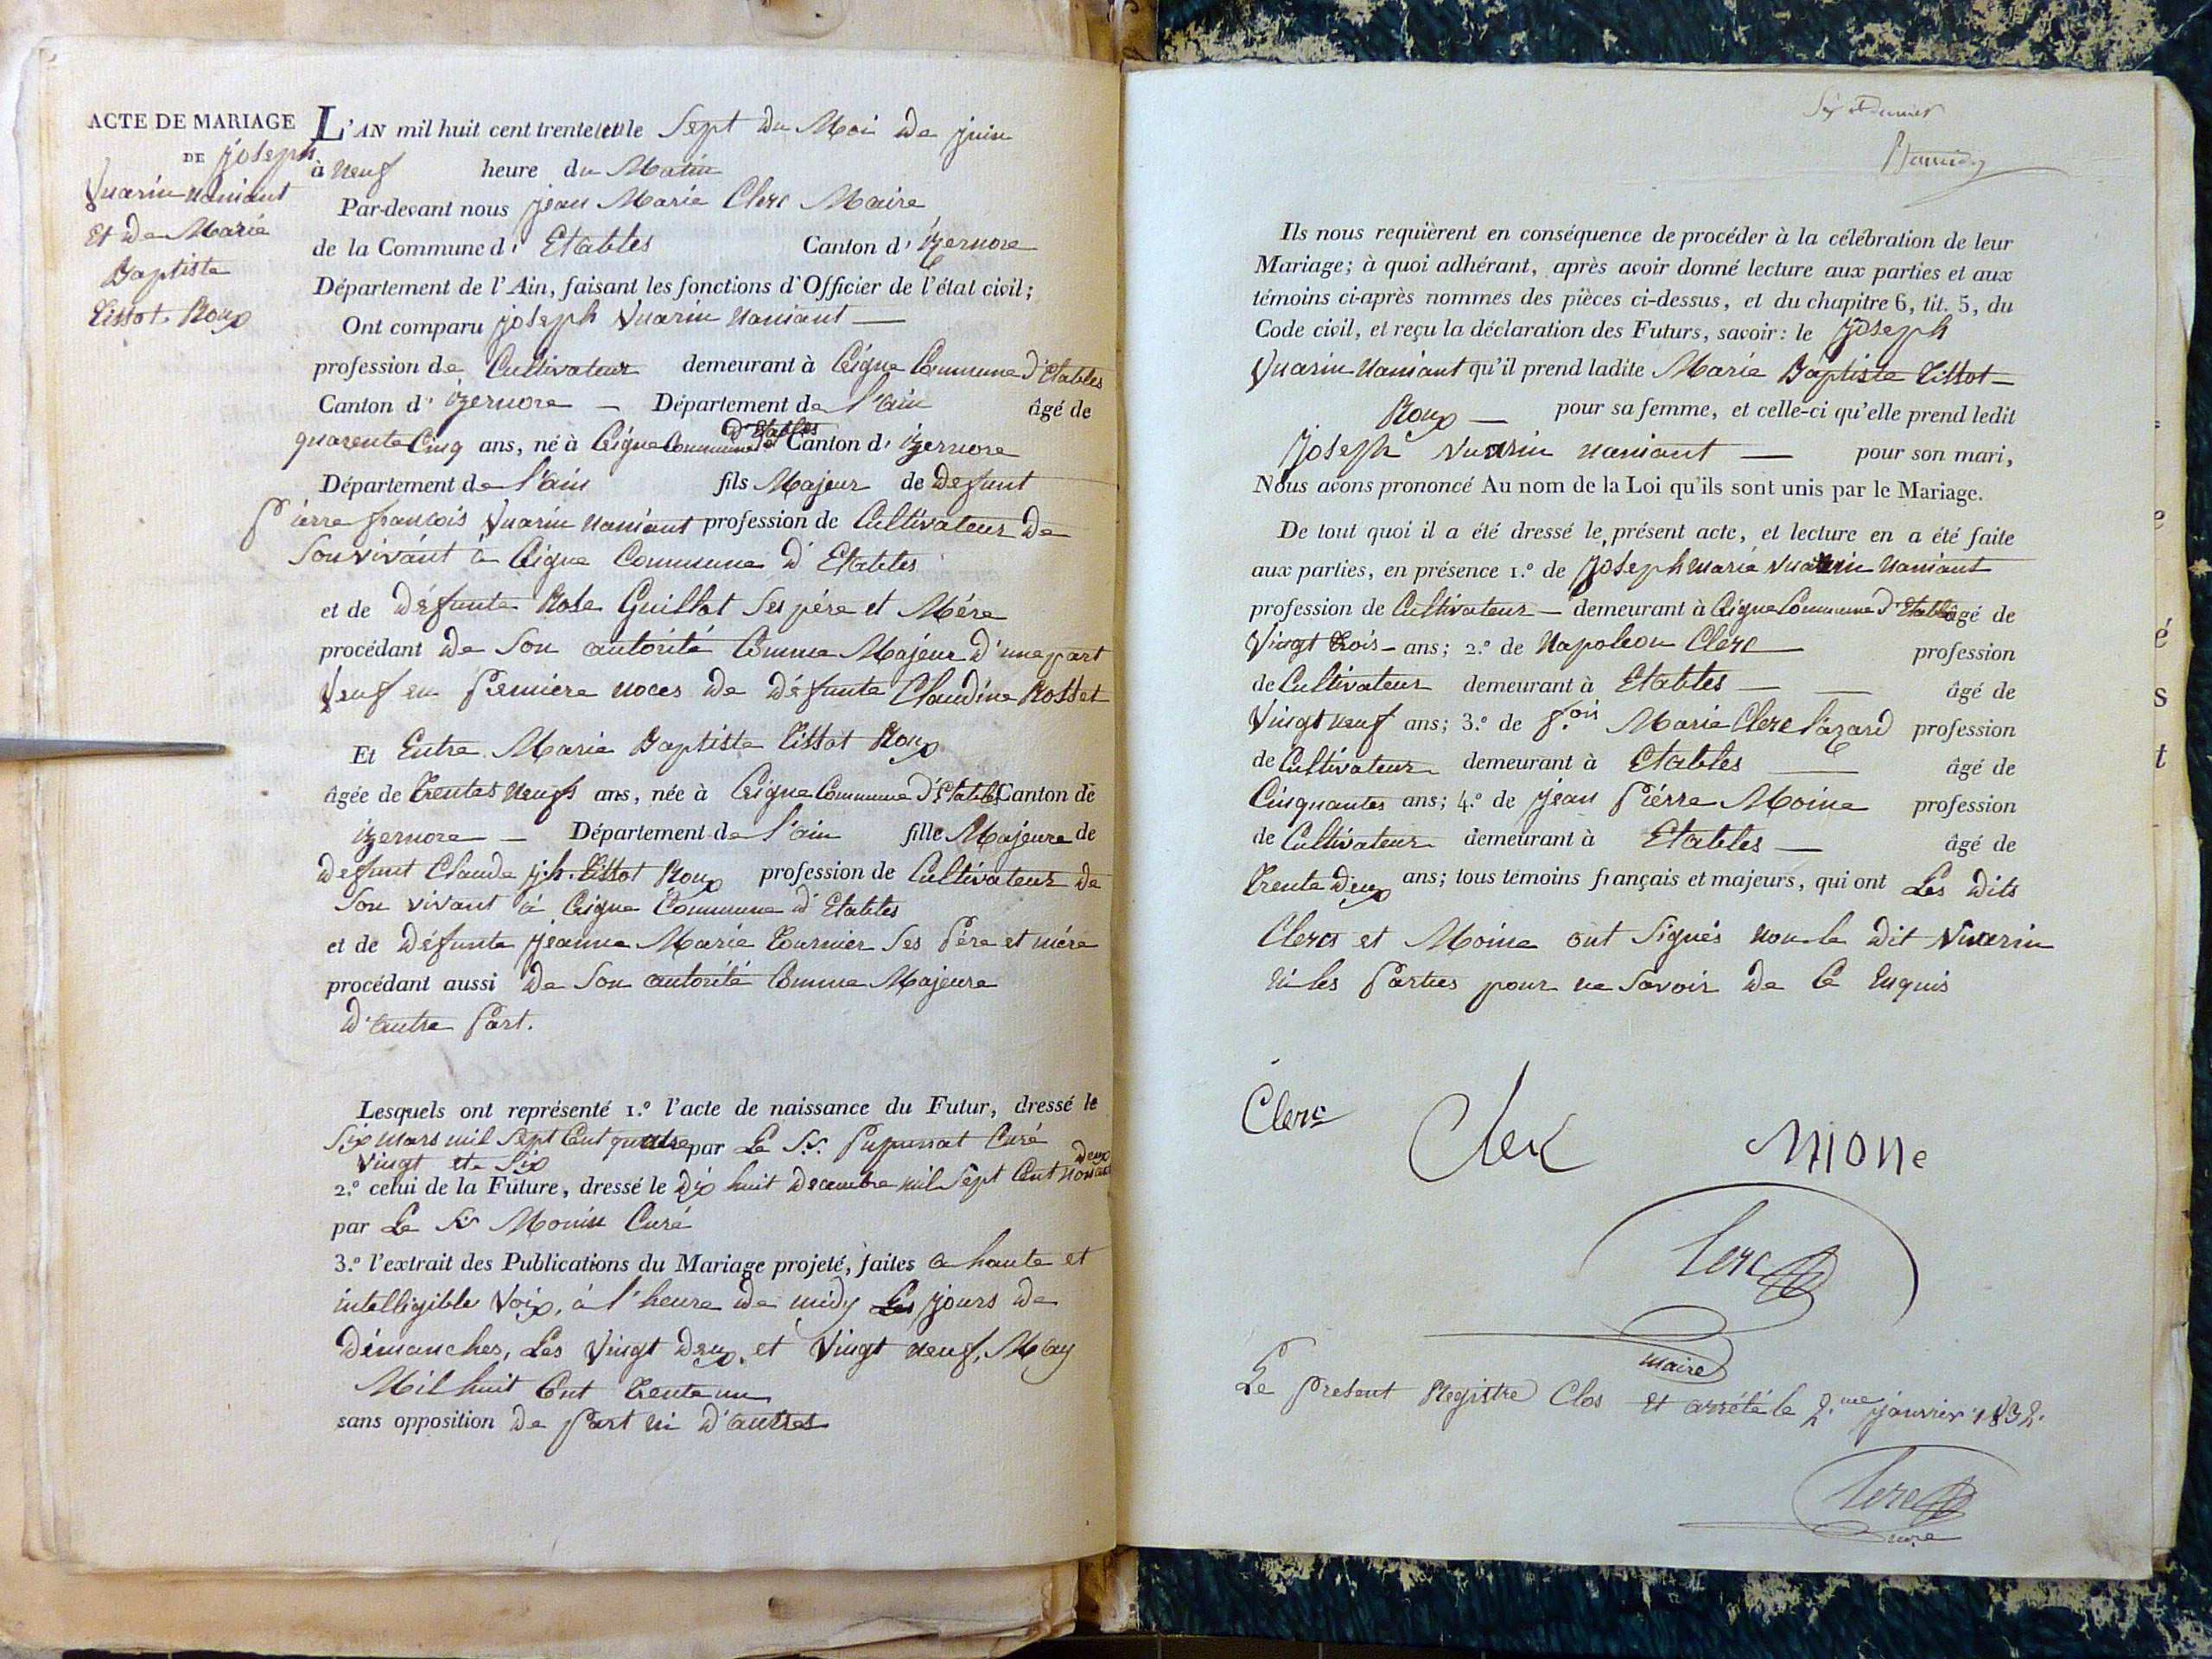 ACTE DE MARIAGE
DE joseph
Vuarin naniant
et de Marie
Baptiste
Tissot Roux
L'AN mil huit cent trente et le Sept du Moi de juin
à neuf heure du Matin
Par-devant nous jean Marie Clerc Maire
de la Commune d' Etables Canton d' izernore
Département de l'Ain, faisant les fonctions d'Officier de l'état civil;
Ont comparu joseph Vuarin naniant
profession de Cultivateur demeurant à Ceigne Commune d'Etables
Canton d' izernore Département de l'ain âgé de
quarente Cinq ans, né à Ceigne Commune d'Etables Canton d' izernore
Département de l'ain fils Majeur de defunt
Pierre francois Vuarin naniant profession de Cultivateur de
Son vivant à Ceigne Commune d'Etables
et de défunte Rose Guillot Ses pére et Mére
procédant de Son autorité Comme Majeur d'une part
Veuf en Premiére noces de défunte Claudine Rosset
Et Entre Marie Baptiste Tissot Roux
âgée de Trentes neufs ans, née à Ceigne Commune d'Etables Canton de
izernore Département de l'ain fille Majeure de
defunt Claude j.h. Tissot Roux profession de Cultivateur de
Son vivant à Ceigne Commune d'Etables
et de défunte jeanne Marie Tournier Ses Pére et mére
procédant aussi de Son autorité Comme Majeure
d'autre Part.
Lesquels ont représenté 1.º l'acte de naissance du Futur, dressé le
Six mars mil Sept Cent quatre par Le Sr. Curé
vingt et Six
2.º celui de la Future, dressé le Dix huit decembre mil Sept Cent nonante deux
par Le Sr Monin Curé
3.º l'extrait des Publications du Mariage projeté, faites a haute et
intelligible voix, à l'heure de midy Les jours de
dimanches, Les vingt deux, et vingt neuf, May
Mil huit Cent Trente un
sans opposition de Part ni d'autres
Ils nous requièrent en conséquence de procéder à la célébration de leur
Mariage; à quoi adhérant, après avoir donné lecture aux parties et aux
témoins ci-après nommés des pièces ci-dessus, et du chapitre 6, tit. 5, du
Code civil, et reçu la déclaration des Futurs, savoir: le joseph
Vuarin naniant qu'il prend ladite Marie Baptiste Tissot
Roux pour sa femme, et celle-ci qu'elle prend ledit
joseph vuarin naniant pour son mari,
Nous avons prononcé Au nom de la Loi qu'ils sont unis par le Mariage.
De tout quoi il a été dressé le présent acte, et lecture en a été faite
aux parties, en présence 1.º de joseph marie vuarin naniant
profession de Cultivateur demeurant à Ceigne Commune d'Etables âgé de
Vingt Trois ans; 2.º de Napoleon Clerc profession
de Cultivateur demeurant à Etables âgé de
Vingt neuf ans; 3.º de f.ois Marie Clerc lazard profession
de Cultivateur demeurant à Etables âgé de
Cinquantes ans; 4.º de jean Piérre Moine profession
de Cultivateur demeurant à Etables âgé de
Trente deux ans; tous témoins français et majeurs, qui ont Les dits
Clercs et Moine ont Signés non le dit Vuarin
ni les Parties pour ne Savoir de Ce enquis
Clerc Clerc Mone
Clerc
maire
Le Présent Registre Clos et arrété le 2.me janvier 1832.
Clerc
maire